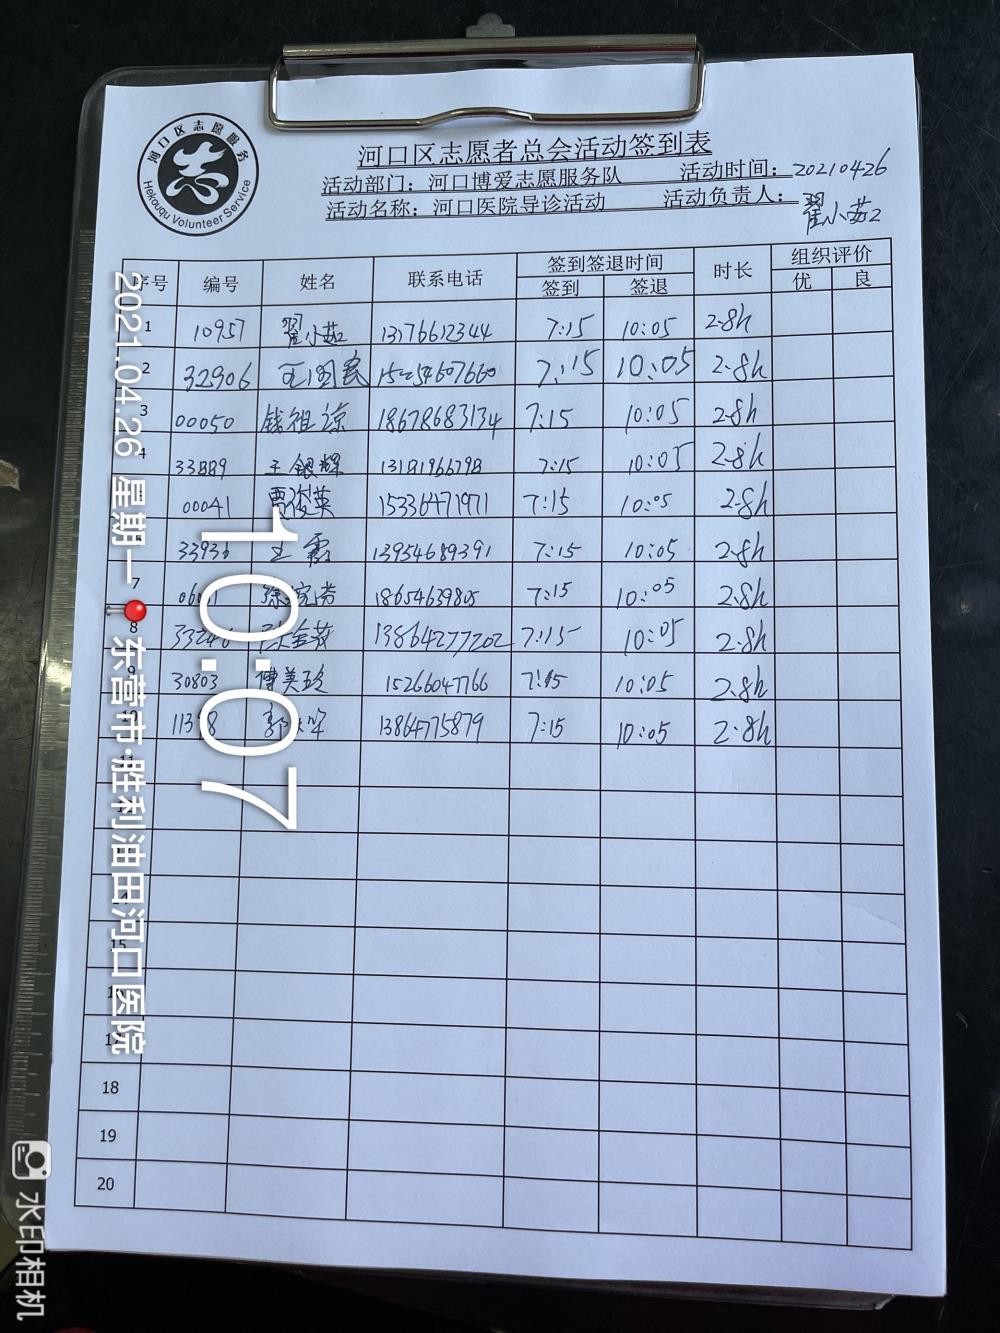 河口区志愿服务
Hekouqu Volunteer Service
河口区志愿者总会活动签到表
活动部门：河口博爱志愿服务队 活动时间：20210426
活动名称：河口医院导诊活动 活动负责人：翟小茹2
序号 编号 姓名 联系电话 签到签退时间 时长 组织评价
签到 签退 优 良
1 10957 翟小茹 13176612344 7:15 10:05 2.8h
2 32906 王国民 15254607660 7:15 10:05 2.8h
3 00050 钱祖谅 18678683134 7:15 10:05 2.8h
4 王银辉 7:15 10:05 2.8h
00041 贾俊英 15336471971 7:15 10:05 2.8h
王霞 13954689391 7:15 10:05 2.8h
7 18654639805 7:15 10:05 2.8h
8 13864277202 7:15 10:05 2.8h
9 30803 傅美玲 15266047766 7:15 10:05 2.8h
10 13864775879 7:15 10:05 2.8h
15
18
19
20
2021.04.26 星期一 东营市·胜利油田河口医院
10:07
水印相机